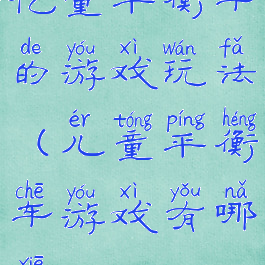 亿童平衡车
de yóu xì wán fǎ
的游戏玩法
ér tóng píng héng
(儿童平衡
chē yóu xì yǒu nǎ
车游戏有哪
xiē